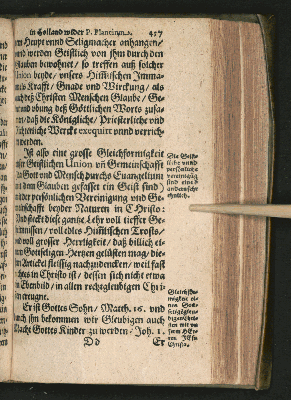 in Holland wider P. Plancium. 417
m Heupt vnnd Seligmacher anhangen/
vnd werden Geistlich von ihm durch den
Glauben bewohnet/ so treffen auß solcher
Union beyde/ vnsers Himlischen Imma-
nuels Krafft/ Gnade vnd Wirckung/ als
auch deß Christen Menschen Glaube/ Ge-
vnd vbung deß Göttlichen Worts zusa-
men/ daß die Königliche/ Priesterliche vnd
Wercke exequirt vnnd verrich-
werden.
Ist also eine grosse Gleichförmigkeit
Geistlichen Union vñ Gemeinschafft
Gott vnd Mensch durchs Euangelium
dem Glauben gefasset ein Geist sind)
der persönlichen Vereinigung vnd Ge-
meinschafft beyder Naturen in Christo:
vnd steckt diese gantze Lehr voll tieffer Ge-
heimnissen/ voll edles Himlischen Trosts/
vnd voll grosser Herrligkeit/ daß billich ei-
Gottseligen Hertzen gelüsten mag/ die-
Artickel fleissig nachzudencken/ weil fast
nichts in Christo ist/ dessen sich nicht etwa
Ebenbild/ in allen rechtgleubigen Chri-
sten erzeugte.
Er ist Gottes Sohn/ Matth. 16. vnd
durch ihn bekommen wir Gleubigen auch
Macht Gottes Kinder zu werden/ Joh. 1.
Dd Er
Die Geist-
liche vnd
persönliche
vereinigũg
sind eine d
andern sehr
ehnlich.
Gleichför-
migkeit ei-
nes Gott-
seligē gleu-
bigen Chri-
sten mit vn-
serm HEr-
ren JEsu
Christo.